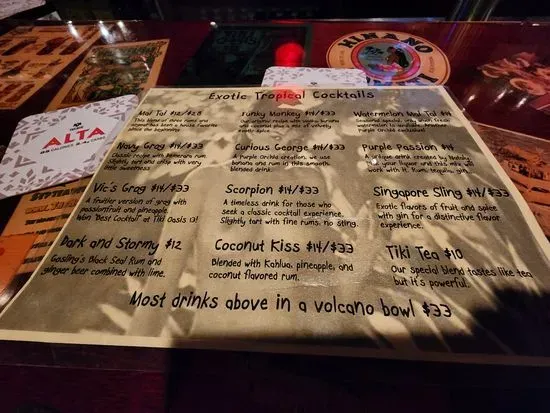 HINANO
ALTA
Exotic Tropical Cocktails
Mai Tai $12/$28
This blend of three rums and
has been a house favorite
since the beginning.
Navy Grog $14/$33
Classic recipe with
and crisp with very
little sweetness
Vic's Grog $14/$33
A fruitier version of grog with
passionfruit and pineapple.
Won "Best Cocktail" at Tiki Oasis 13!
Dark and Stormy $12
Gosling's Black Seal Rum and
ginger beer combined with lime.
Funky Monkey $14/$33
Our original recipe with
plus a mix of velvety
exotic spice.
Curious George $14/$33
A Purple Orchid creation, we use
banana and rum in this smooth
blended drink.
Scorpion $14/$33
A timeless drink for those who
seek a classic cocktail experience.
Slightly tart with fine rums, no sting.
Coconut Kiss $14/$33
Blended with Kahlua, pineapple, and
coconut flavored rum.
Watermelon Mai Tai $14
Seasonal special,
watermelon
Purple Orchid exclusive!
Purple Passion $14
A unique drink created by
your liquor and this mix will
work with it. Rum, tequila, gin...
Singapore Sling $14/$33
Exotic flavors of fruit and spice
with gin for a distinctive flavor
experience.
Tiki Tea $10
Our special blend tastes like tea
but it's powerful.
Most drinks above in a volcano bowl $33